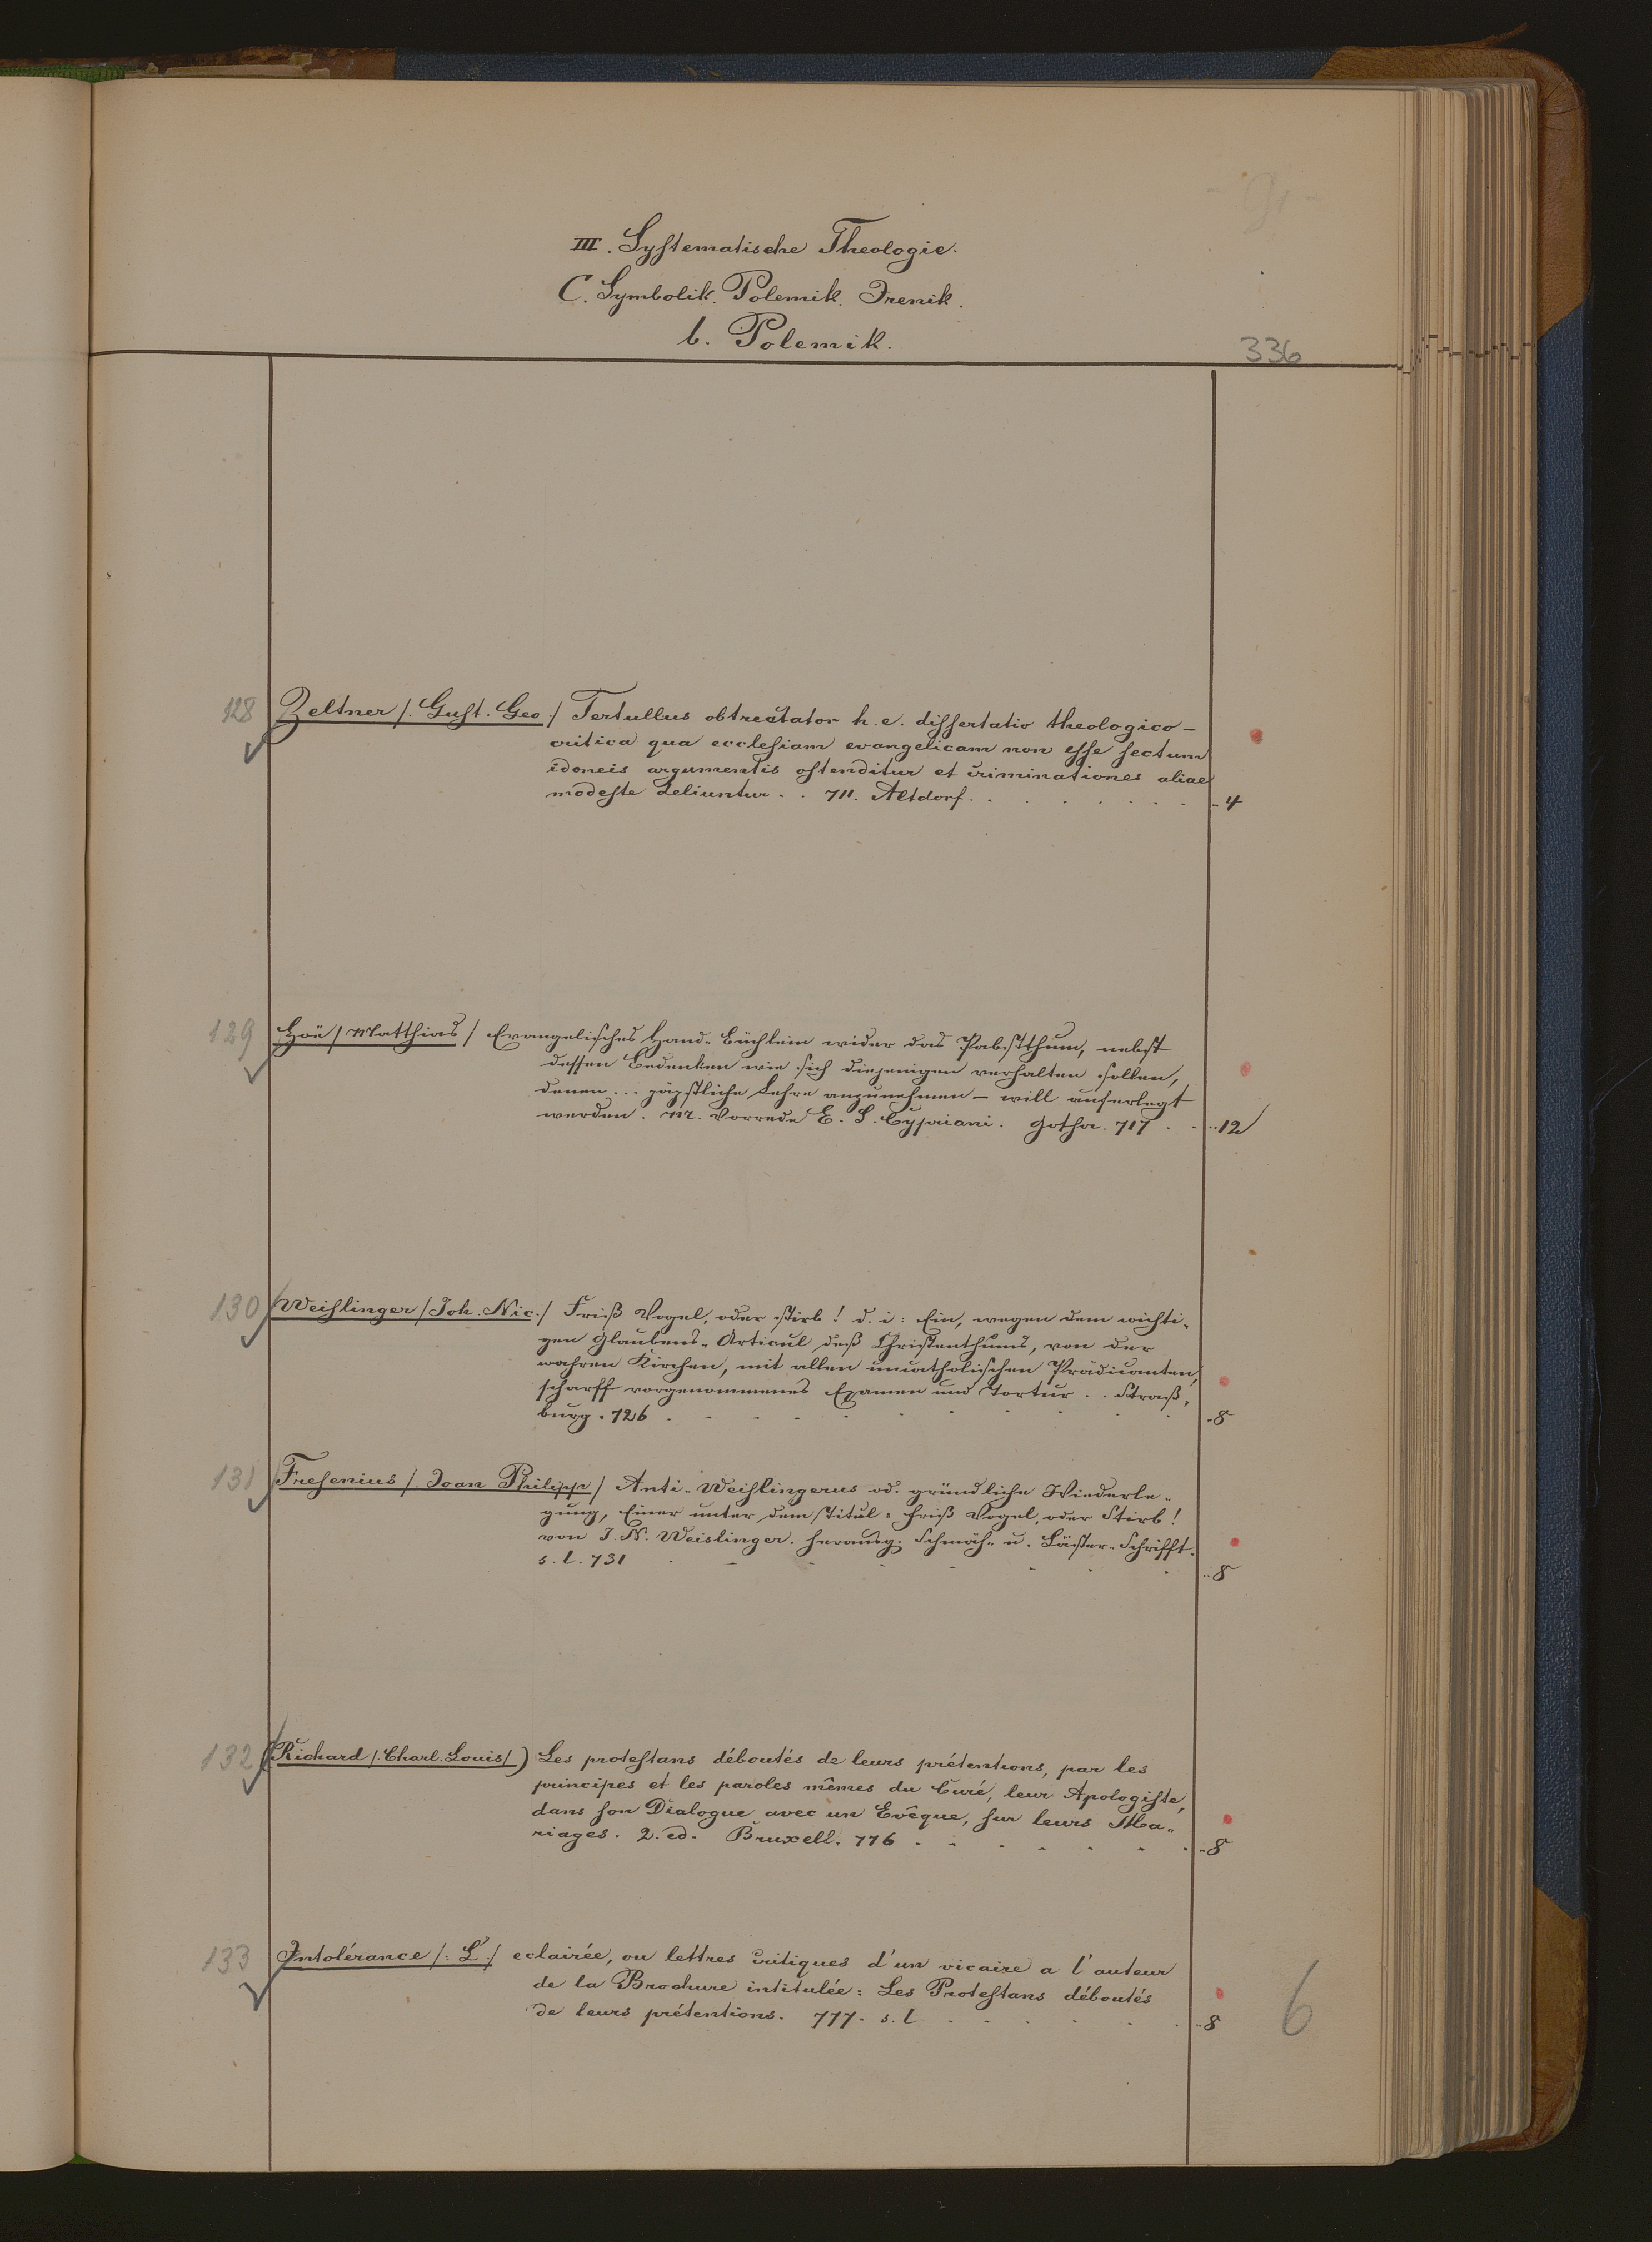 III. Systematische Theologie.
C. Symbolik. Polemik. Irenik.
b. Polemik.
336
128 Zeltner /. Gust. Geo:/ Tertullus obtrectator h. e. dissertatio theologico-
critica qua ecclesiam evangelicam non esse sectam
idoneis argumentis ostenditur et criminationes aliae
modeste deliuntur . . 711. Altdorf. . . . . . . - 4
129 Hoë / Matthias / Evangelisches Hand-Büchlein wider das Pabstthum, nebst
dessen Bedenken wie sich diejenigen verhalten sollen,
denen ... päpstliche Lehre anzunehmen - will auferlegt
werden. M. Vorrede E. S. Cypriani. Gotha. 717 . . . . 12
130 Weislinger / Joh. Nic./ Friß Vogel, oder stirb! d. i: Ein, wegen dem wichti-
gen Glaubens-Articul deß Christenthums, von der
wahren Kirchen, mit allen uncatholischen Prädicanten,
scharff vorgenommenes Examen und Tortur . . Straß-
burg. 726 . . . . . . . . . 8
131 Fresenius / Joan Philipp / Anti-Weislingerus od. gründliche Wiederle-
gung, Einer unter dem Titul: friß Vogel, oder Stirb!
von J. N. Weislinger. herausg. Schmäh- u. Läster-Schrifft.
s. l. 731 . . . . . . . . 8
132 (Richard /. Charl. Louis/) Les protestans déboutés de leurs prétentions, par les
principes et les paroles mêmes du Curé, leur Apologiste,
dans son Dialogue avec un Evêque, sur leurs Ma-
riages. 2. ed. Bruxell. 776 . . . . . . . . 8
133 Intolérance /: L':/ eclairée, ou lettres critiques d'un vicaire a l'auteur
de la Brochure intitulée: Les Protestans déboutés
de leurs prétentions. 777. s. l . . . . . . . . 8
6